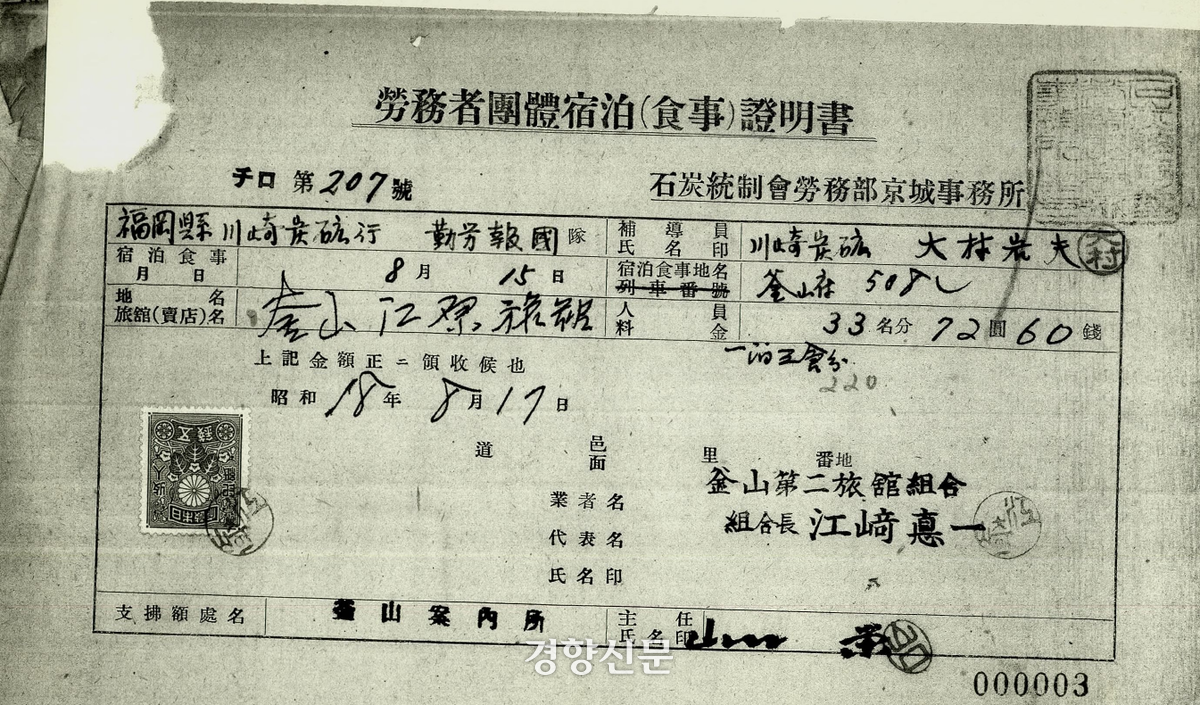 勞務者團體宿泊(食事)證明書
チロ 第207號
石炭統制會勞務部京城事務所
福岡縣川崎炭砿行 勤労報國隊
補導員氏名印 川崎炭砿 大林岩夫 村
宿泊食事月日 8月15日
宿泊食事地名 列車番號 釜山
地名 旅舘(賣店)名 釜山江
人員料金 33名分 72圓60錢
上記金額正ニ領收候也
220
昭和18年8月17日
道 邑面 里 番地
業者名 釜山第二旅舘組合
代表名 組合長 江﨑 一
氏名印
支拂額處名 釜山案内所
主任氏名印
경향신문
000003